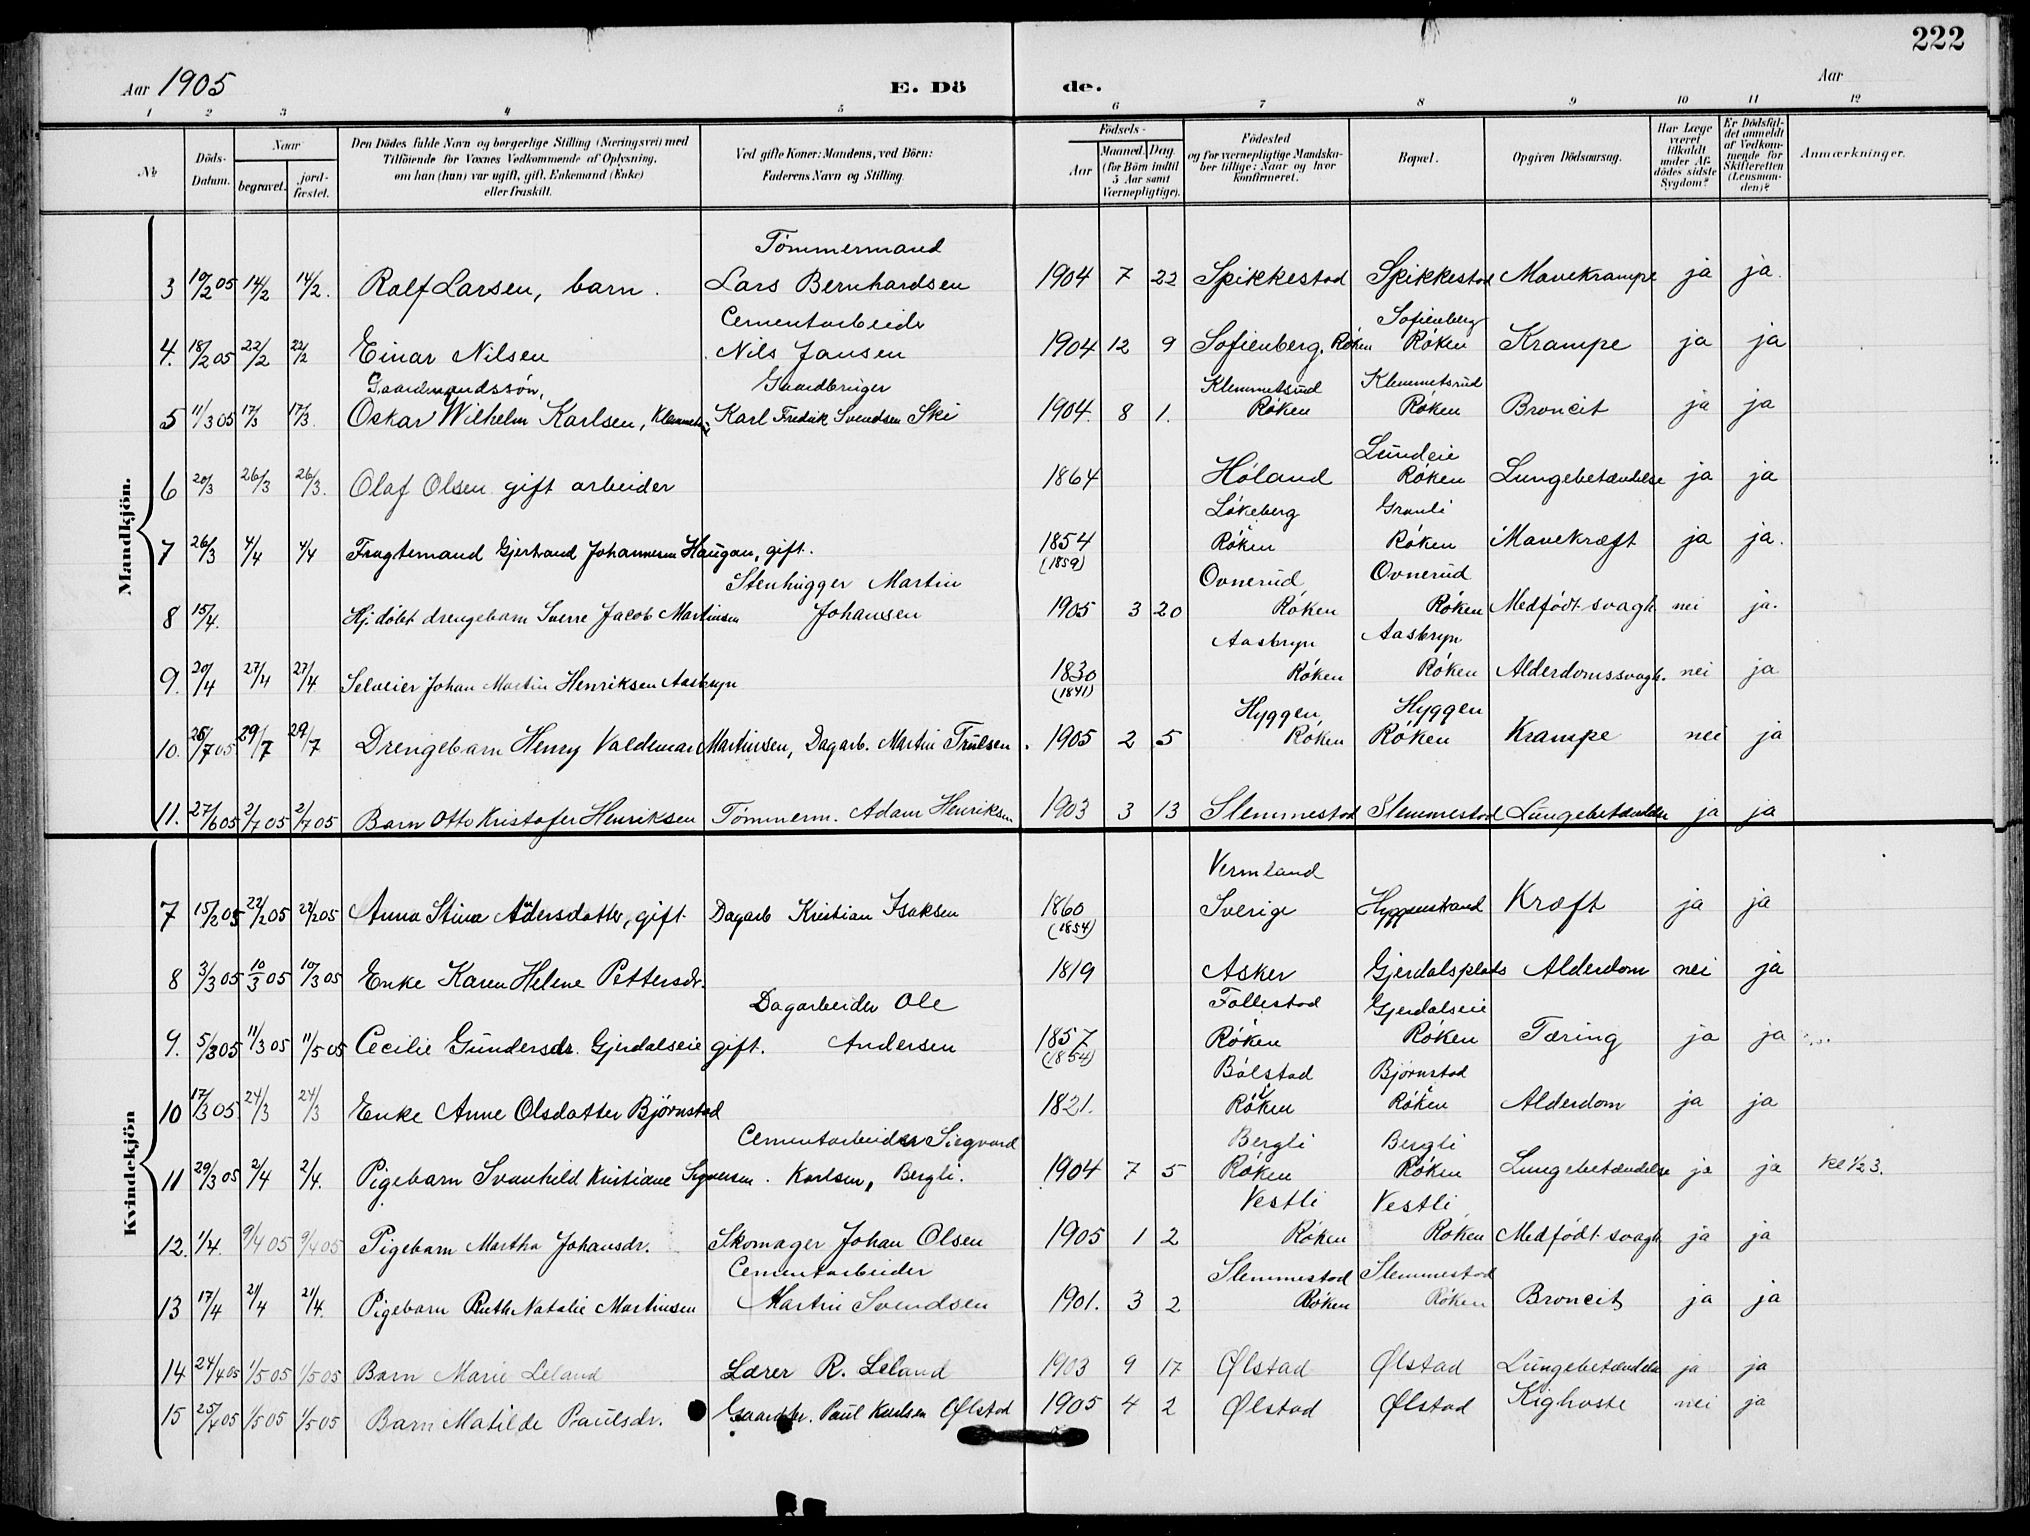 222
Aar 1905 E. Dö de. Aar
1 2 3 4 5 6 7 8 9 10 11 12
№ Döds-Datum. Naar begravet. jord-fæstet. Den Dödes fulde Navn og borgerlige Stilling (Næringsvei) med Tilföiende for Voxnes Vedkommende af Oplysning, om han (hun) var ugift, gift, Enkemand (Enke) eller fraskilt. Ved gifte Koner: Mandens, ved Börn: Faderens Navn og Stilling. Födsels- Aar Maaned. Dag (for Börn indtil 5 Aar samt Værnepligtige). Födested og for værnepligtige Mandskaber tillige: Naar og hvor konfirmeret. Bopæl. Opgiven Dödsaarsag. Har Læge været tilkaldt under Afdödes sidste Sygdom? Er Dödsfaldet anmeldt af Vedkommende for Skifteretten (Lensmanden)? Anmærkninger.
Mandkjön.
Tömmermand
3 10/2 05 14/2 14/2. Ralf Larsen, barn. Lars Bernhardsen 1904 7 22 Spikkestad Spikkestad Mavekrampe ja ja.
Cementarbeider Sofienberg
4. 18/2 05 22/2 22/2 Einar Nilsen Nils Jansen 1904 12 9 Sofienberg, Röken Röken Krampe ja ja
Gaardmandssön, Gaardbruger Klemmetsrud Klemmetsrud
5 11/3 05 17/3 17/3. Oskar Wilhelm Karlsen, Karl Fredrik Svendsen Ski 1904. 8 1. Röken Röken Broncit ja ja
Lundeie
6 20/3 26/3 26/3. Olaf Olsen gift arbeider 1864 Höland Röken Lungebetændelse ja ja
Lökeberg Granli
7 26/3 4/4 4/4 Fragtemand Gjertrand Johannesen Haugan, gift. 1854 (1859) Röken Röken Mavekræft ja ja.
Stenhugger Martin Ovnerud Ovnerud
8 15/4. Hj. döbt drengebarn Sverre Jacob Martinsen Johansen 1905 3 20 Röken Röken Medfödt svagh. nei ja.
Aasbryn Aasbryn
9. 20/4 27/4 27/4 Selveier Johan Martin Henriksen Aasbryn 1830 (1841) Röken Röken Alderdomssvagh. nei ja
Hyggen Hyggen
10. 25/7 05 29/7 29/7 Drengebarn Henry Valdemar Martinsen, Dagarb. Martin Trulsen. 1905 2 5 Röken Röken Krampe nei ja
11. 27/6 05 2/7 05 2/7 05 Barn Otto Kristofer Henriksen Tömmerm. Adam Henriksen 1903 3 13 Slemmestad Slemmestad Lungebetændelse ja ja
Kvindekjön
Vermland
7 15/2 05 22/2 05 22/2 05 Anna Stina Andersdatter, gift Dagarb Kristian Isaksen 1860 (1854) Sverige Hyggenstrand Kræft ja ja
8 3/3 05 10/3 05 10/3 05 Enke Karen Helene Pettersdr. 1819 Asker Gjerdalsplads Alderdom nei ja
Dagarbeider Ole Follestad Gjerdalseie
9. 5/3 05 11/3 05 11/5 05 Cecilie Gundersdr. Gjerdalseie gift. Andersen 1857 (1854) Röken Röken Tæring ja ja
Bölstad Björnstad
10 17/3 05 24/3 24/3 Enke Anne Olsdatter Björnstad 1821. Röken Röken Alderdom ja ja
Cementarbeider Siegvard Bergli Bergli
11 29/3 05 2/4 2/4. Pigebarn Svanhild Kristiane Karlsen, Bergli. 1904 7 5 Röken Röken Lungebetændelse ja ja Kl ½ 3.
Vestli Vestli
12. 1/4. 9/4 05 9/4 05 Pigebarn Martha Johansdr. Skomager Johan Olsen 1905 1 2 Röken Röken Medfödt svagh ja ja
Cementarbeider Slemmestad Slemmestad
13 17/4 21/4 21/4. Pigebarn Ruth Natalie Martinsen Martin Svendsen 1901. 3 2 Röken Röken Broncit ja ja
14 24/4 05 1/5 05 1/5 05 Barn Marie Leland Lærer R. Leland 1903 9 17 Ølstad Ølstad Lungebetændelse ja ja
15 25/4 05 1/5 05 1/5 05 Barn Matilde Paulsdr. Gaardbr. Paul Karlsen Ølstad 1905 4 2 Ølstad Ølstad Kighoste nei ja